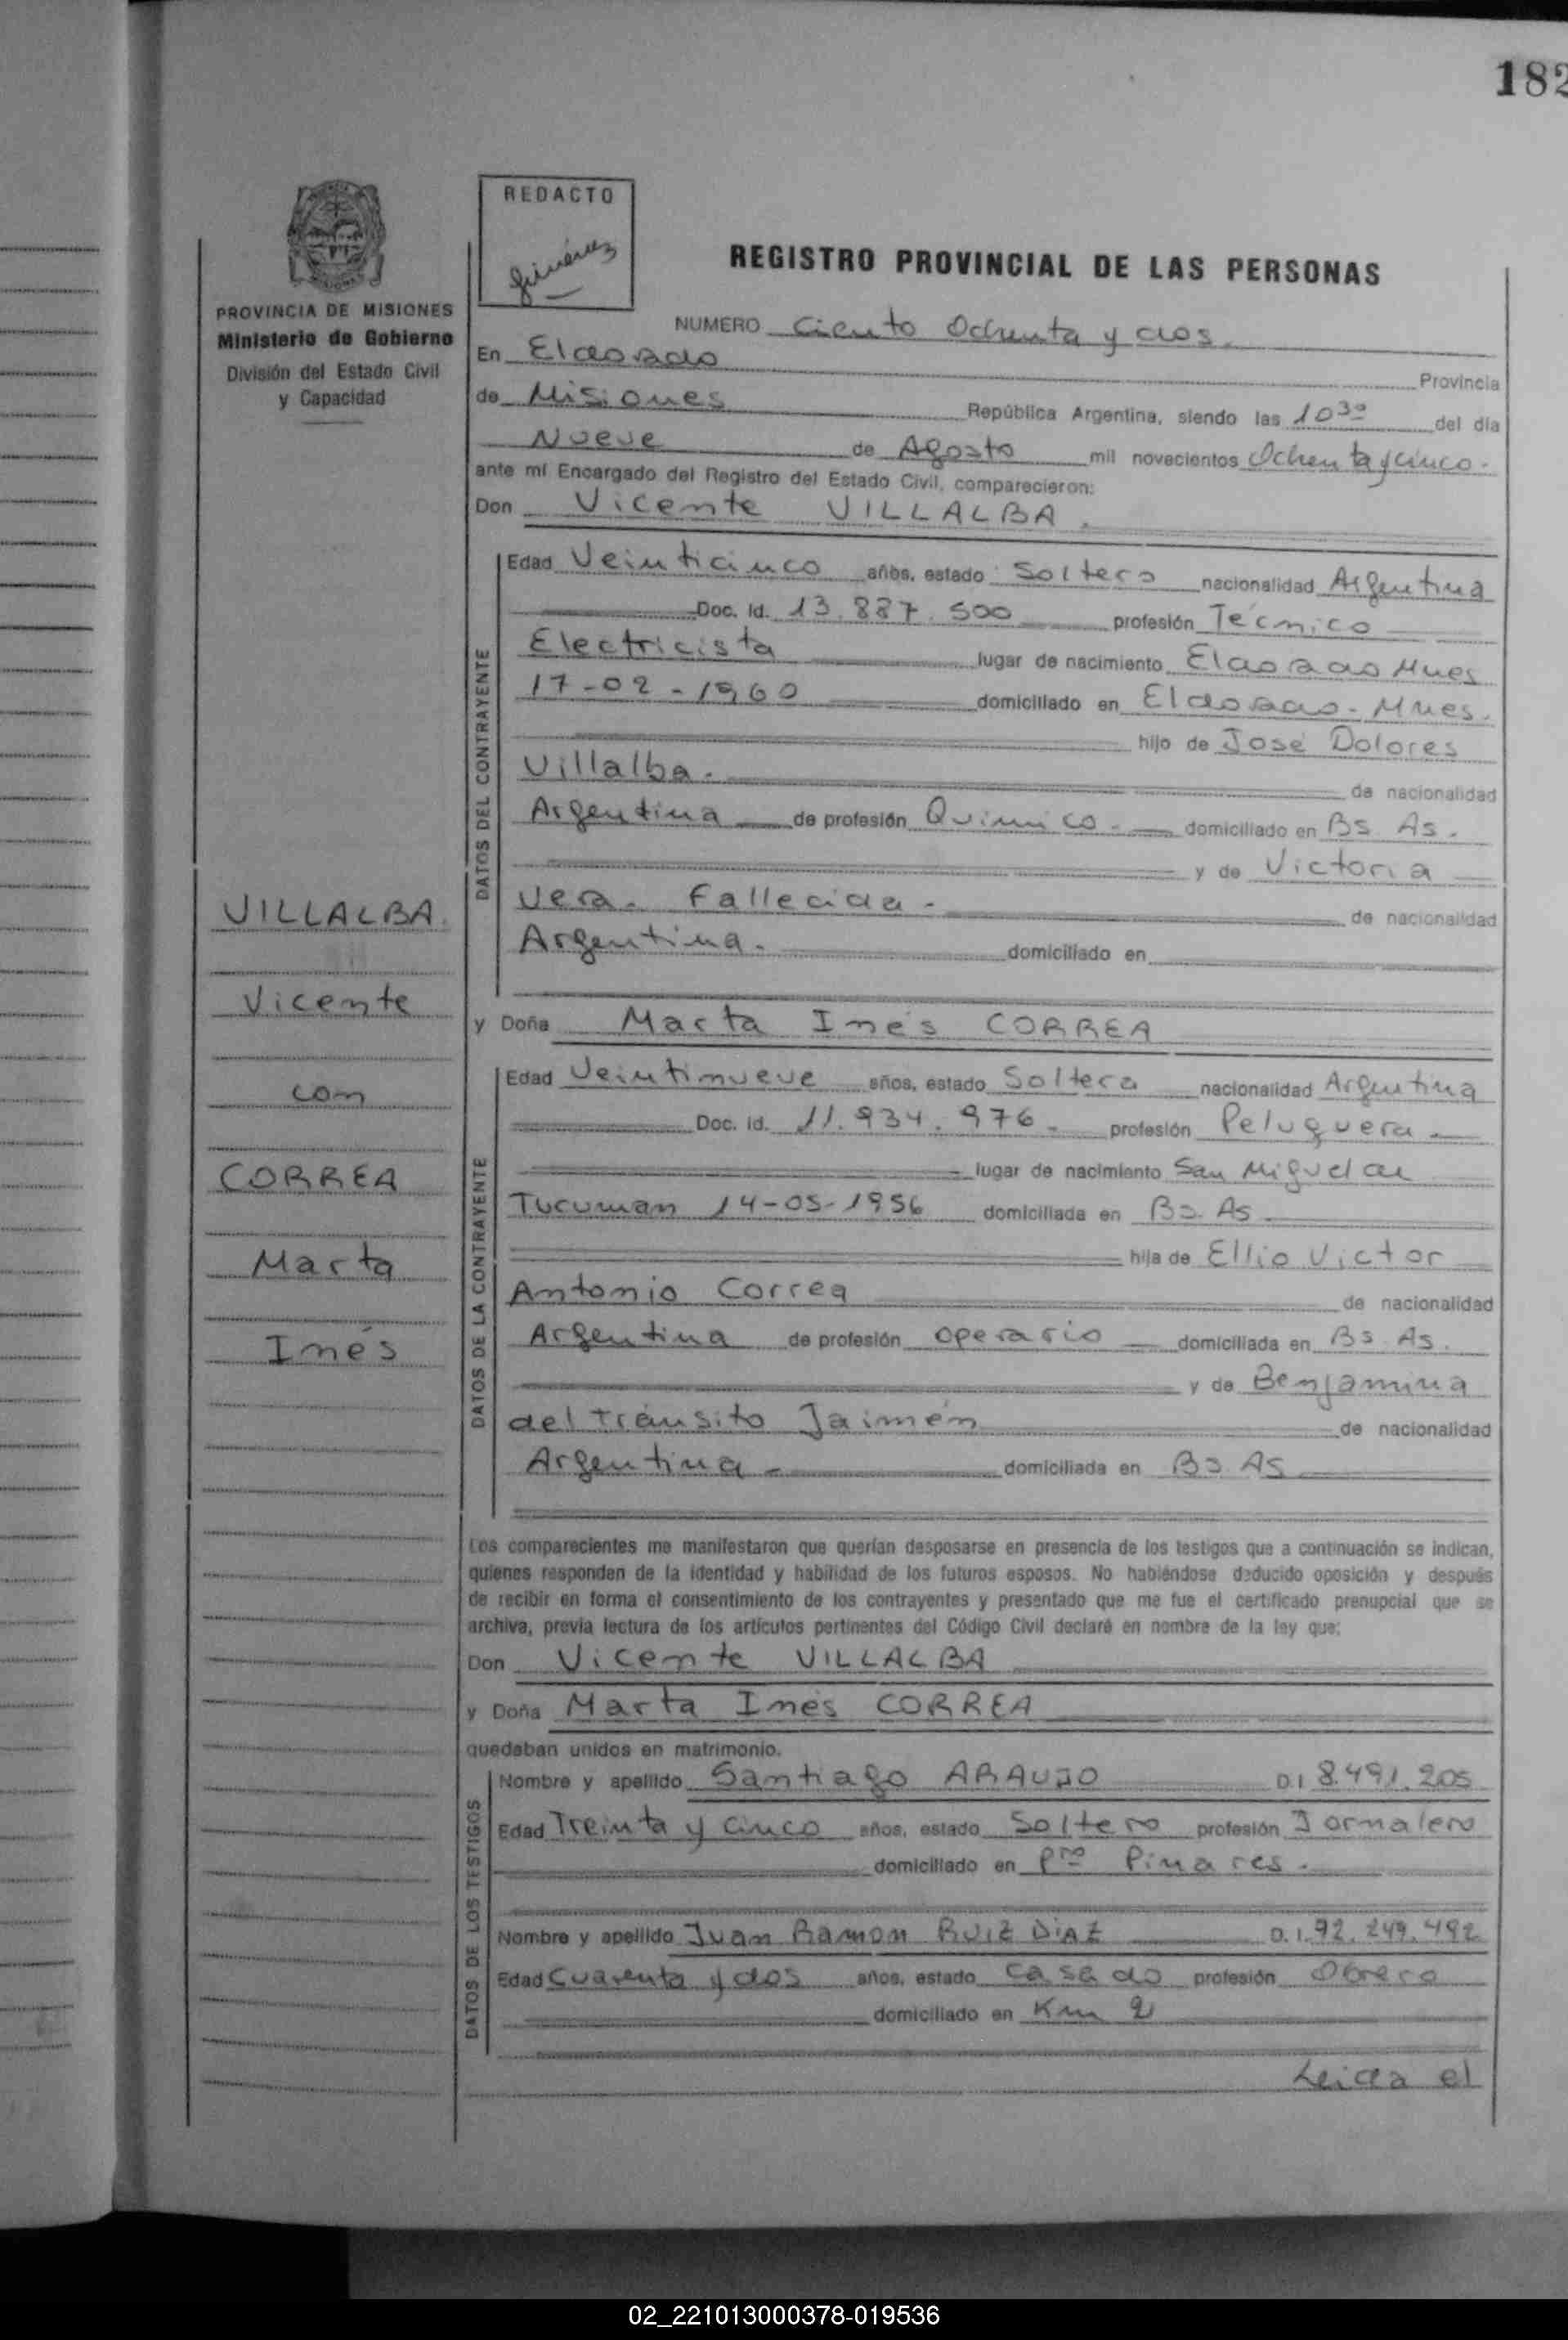 182
REDACTO
Giménez
PROVINCIA DE MISIONES
Ministerio de Gobierno
División del Estado Civil
y Capacidad
REGISTRO PROVINCIAL DE LAS PERSONAS
NUMERO Ciento Ochenta y dos.
En Eldorado Provincia
de Misiones República Argentina, siendo las 10 30 del día
Nueve de Agosto mil novecientos Ochenta y cinco.
ante mí Encargado del Registro del Estado Civil, comparecieron:
Don Vicente VILLALBA.
DATOS DEL CONTRAYENTE
Edad Veinticinco años, estado Soltero nacionalidad Argentina
Doc. Id. 13.887.500 profesión Técnico
Electricista lugar de nacimiento Eldorado Mnes
17-02-1960 domiciliado en Eldorado - Mnes.
hijo de José Dolores
Villalba. de nacionalidad
Argentina de profesión Quimico. domiciliado en Bs. As.
y de Victoria
Vera. Fallecida. de nacionalidad
Argentina. domiciliado en
VILLALBA.
Vicente
con
CORREA
Marta
Inés
y Doña Marta Inés CORREA
DATOS DE LA CONTRAYENTE
Edad Veintinueve años, estado Soltera nacionalidad Argentina
Doc. Id. 11.934.976. profesión Peluquera
lugar de nacimiento San Miguel de
Tucuman 14-05-1956 domiciliada en Bs. As.
hija de Ellio Victor
Antonio Correa de nacionalidad
Argentina de profesión operario domiciliada en Bs. As.
y de Benjamina
del tránsito Jaimén de nacionalidad
Argentina domiciliada en Bs. As
Los comparecientes me manifestaron que querían desposarse en presencia de los testigos que a continuación se indican,
quienes responden de la identidad y habilidad de los futuros esposos. No habiéndose deducido oposición y después
de recibir en forma el consentimiento de los contrayentes y presentado que me fue el certificado prenupcial que se
archiva, previa lectura de los artículos pertinentes del Código Civil declaré en nombre de la ley que:
Don Vicente VILLALBA
y Doña Marta Inés CORREA
quedaban unidos en matrimonio.
DATOS DE LOS TESTIGOS
Nombre y apellido Santiago ARAUJO D.I 8.491.205
Edad Treinta y cinco años, estado Soltero profesión Jornalero
domiciliado en Pto Pinares.
Nombre y apellido Juan Ramon RUIZ DIAZ D.I. 92.249.492
Edad Cuarenta y dos años, estado casado profesión Obrero
domiciliado en Km 2
Leida el
02_221013000378-019536